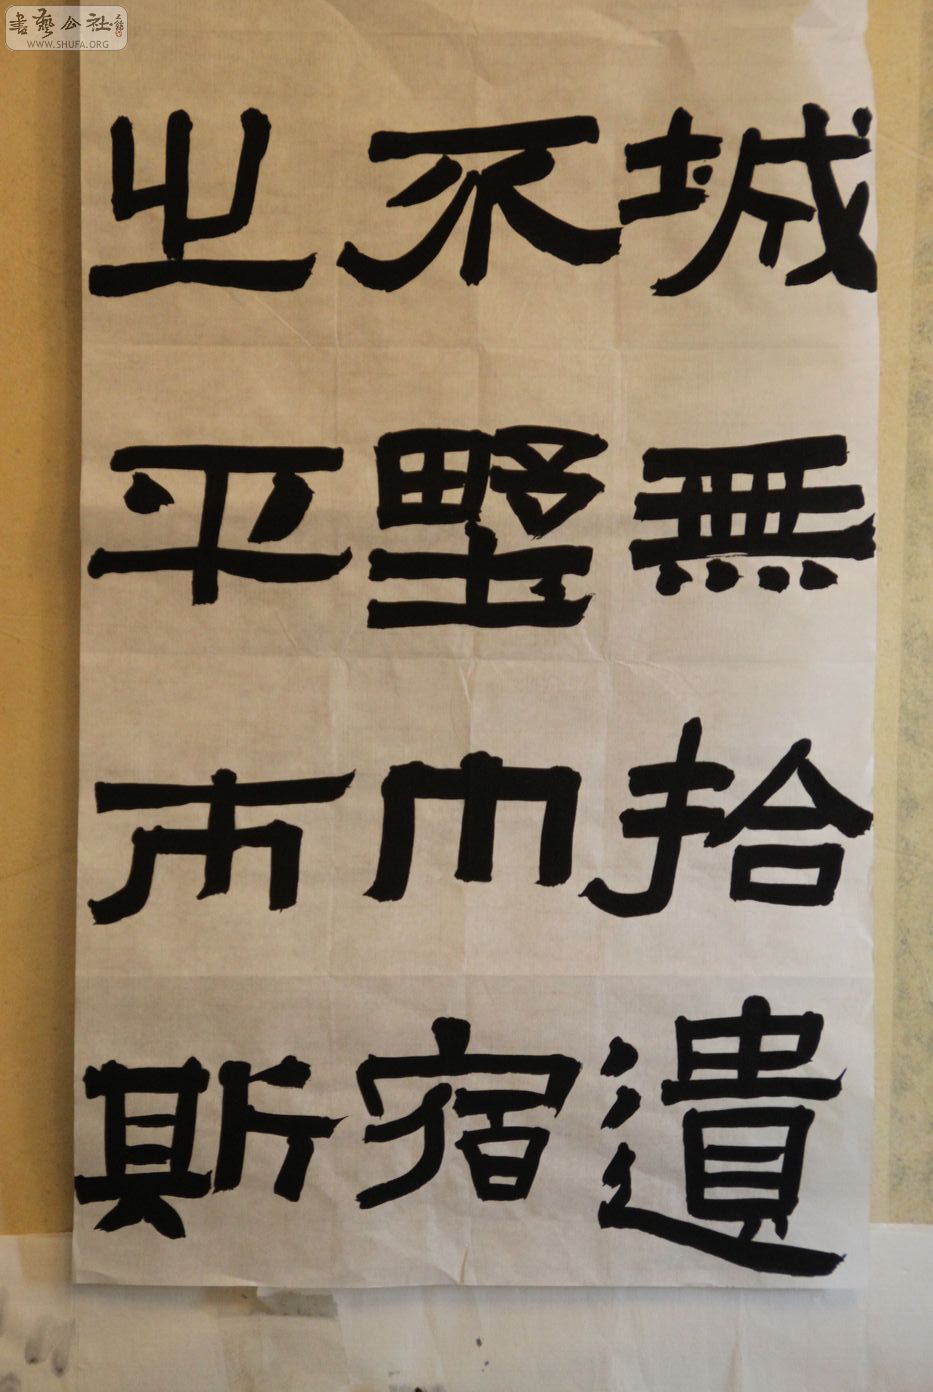 城無拾遺
不野巾宿
之平市斯
書藝公社
WWW.SHUFA.ORG